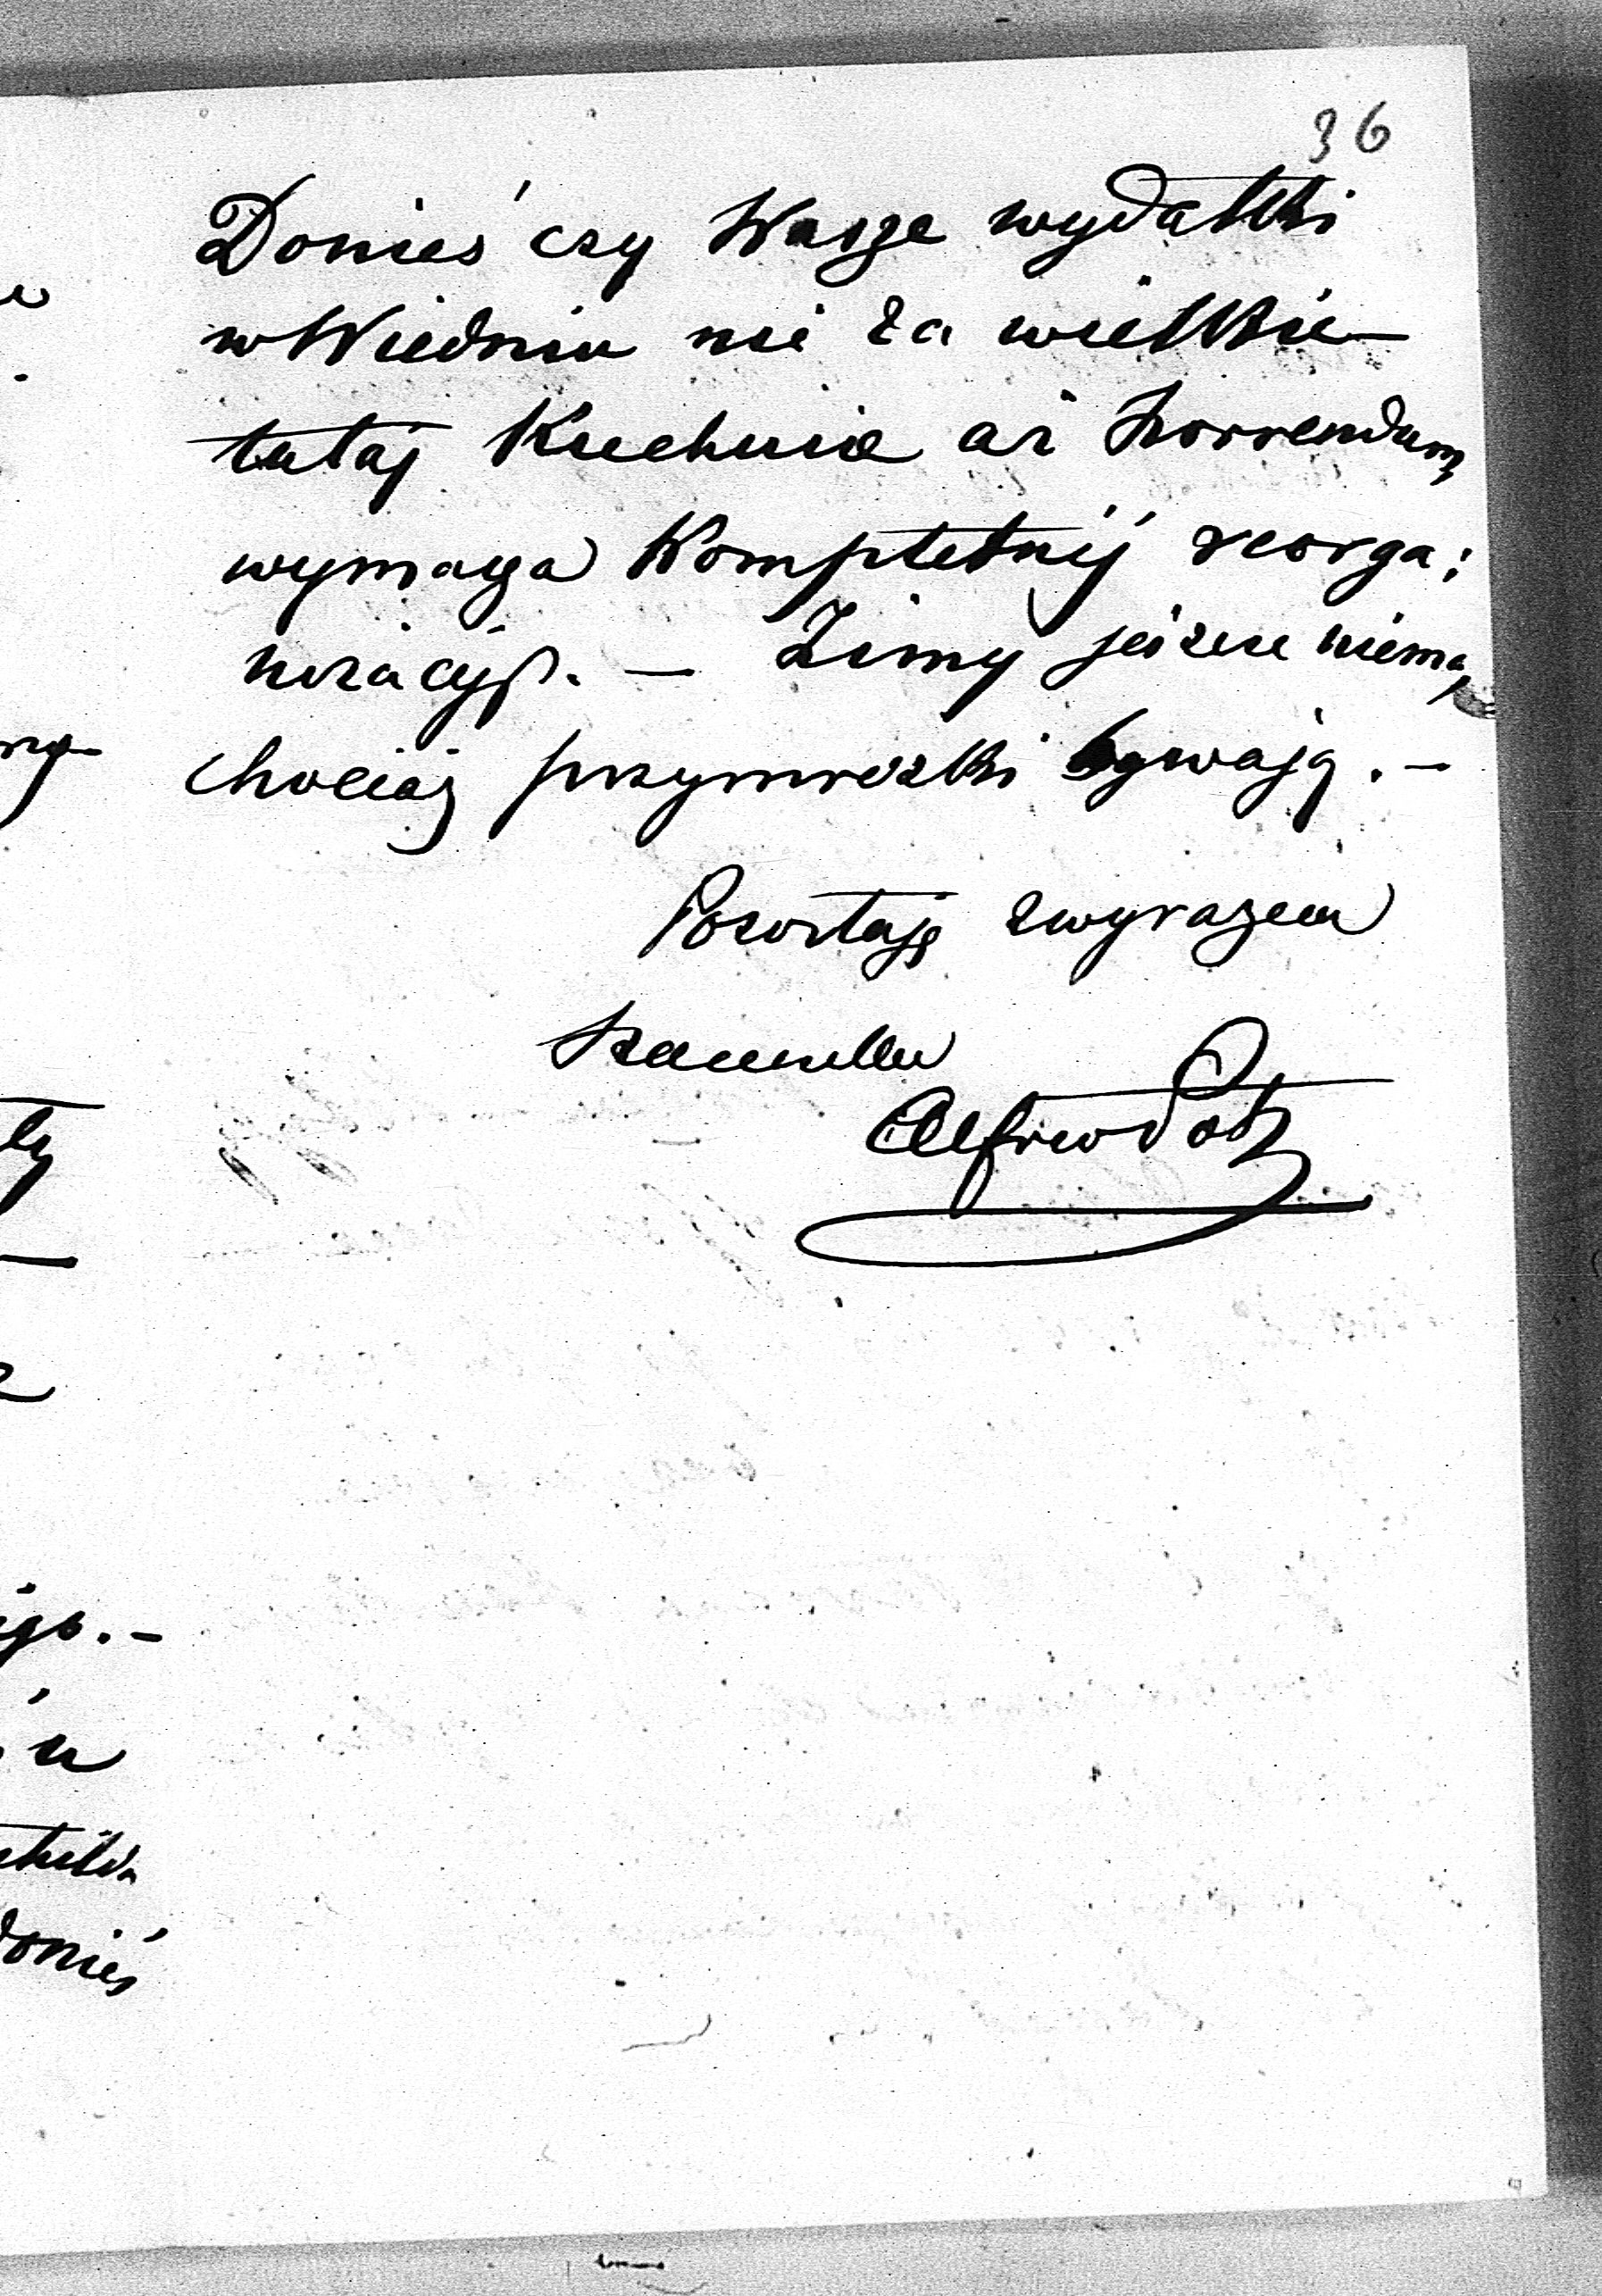 36
Donieś czy Wasze wydatki
w Wiedniu nie za wielkie —
tutaj Kuchnia aż horrendum,
wymaga Kompletnéj reorga:
nizacyi. — Zimy jeszcze niema,
chociaż przymrozki bywają. —
Pozostaję z wyrazem
szacunku
Alfred Pot